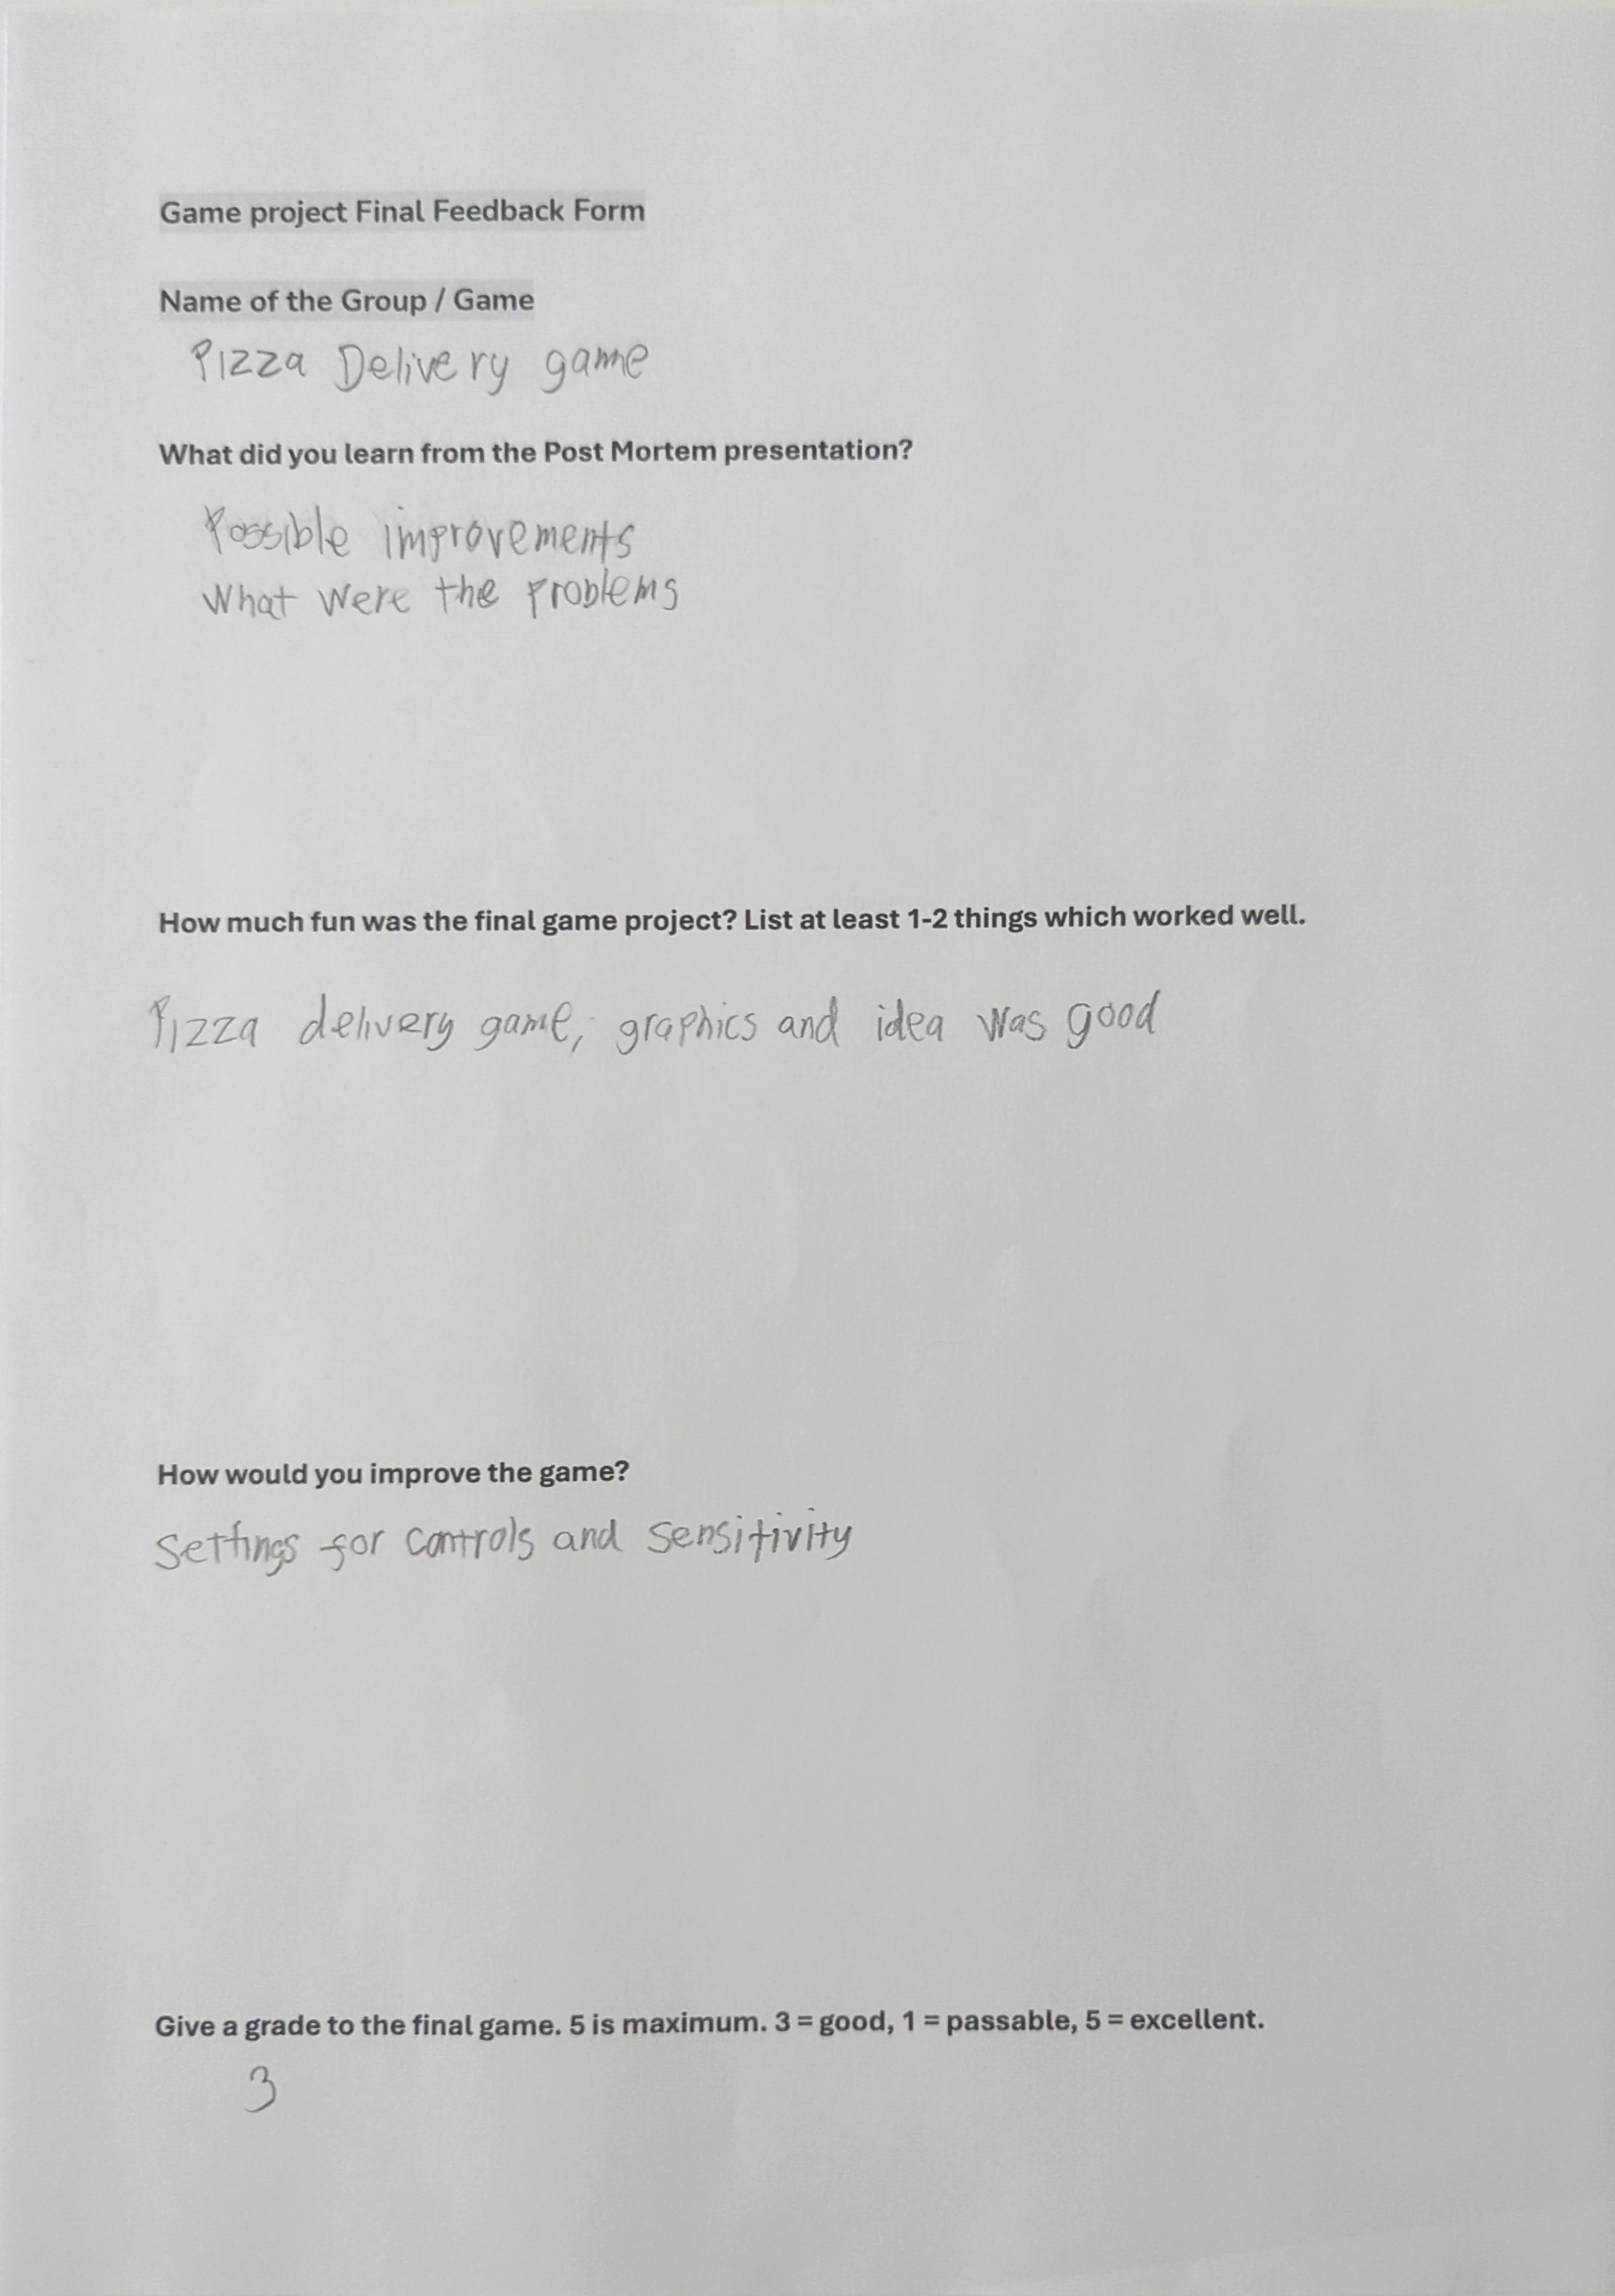 Game project Final Feedback Form
Name of the Group / Game
Pizza Delivery game
What did you learn from the Post Mortem presentation?
Possible improvements
What were the problems
How much fun was the final game project? List at least 1-2 things which worked well.
Pizza delivery game, graphics and idea was good
How would you improve the game?
Settings for controls and sensitivity
Give a grade to the final game. 5 is maximum. 3 = good, 1 = passable, 5 = excellent.
3